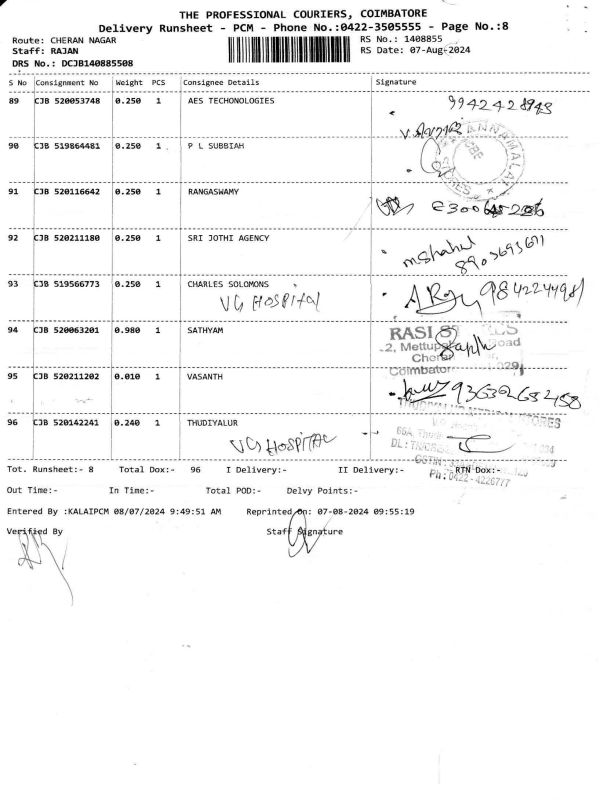 THE PROFESSIONAL COURIERS, COIMBATORE
Delivery Runsheet - PCM - Phone No.:0422-3505555 - Page No.:8
Route: CHERAN NAGAR
RS No.: 1408855
Staff: RAJAN
RS Date: 07-Aug-2024
DRS No.: DCJB140885508
S No Consignment No Weight PCS Consignee Details Signature
89 CJB 520053748 0.250 1 AES TECHONOLOGIES
90 CJB 519864481 0.250 1 P L SUBBIAH
91 CJB 520116642 0.250 1 RANGASWAMY
92 CJB 520211180 0.250 1 SRI JOTHI AGENCY
8903693671
93 CJB 519566773 0.250 1 CHARLES SOLOMONS
VG HOSPITAL
9842244981
94 CJB 520063201 0.980 1 SATHYAM
RASI
Coimbatore
95 CJB 520211202 0.010 1 VASANTH
9363268458
96 CJB 520142241 0.240 1 THUDIYALUR
VG HOSPITAL
Tot. Runsheet:- 8 Total Dox:- 96 I Delivery:- II Delivery:- RTN Dox:-
Out Time:- In Time:- Total POD:- Delvy Points:-
Entered By :KALAIPCM 08/07/2024 9:49:51 AM Reprinted On: 07-08-2024 09:55:19
Verified By Staff Signature